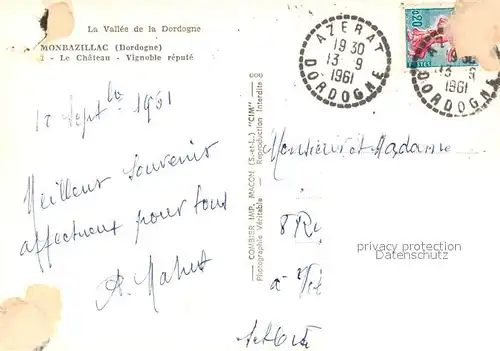 La Vallée de la Dordogne
MONBAZILLAC (Dordogne)
- Le Château - Vignoble réputé
12 Septbre 1961
Meilleur souvenir
affectueux pour tous
A. Mahut
COMBIER IMP. MACON (S.-et-L.) "CIM"
Photographie Véritable - Reproduction Interdite
AZERAT
19 30
13 - 9
1961
DORDOGNE
0,20
13 - 9
1961
DORDOGNE
Monsieur et Madame
8 R
à
privacy protection
www.delcampe.net